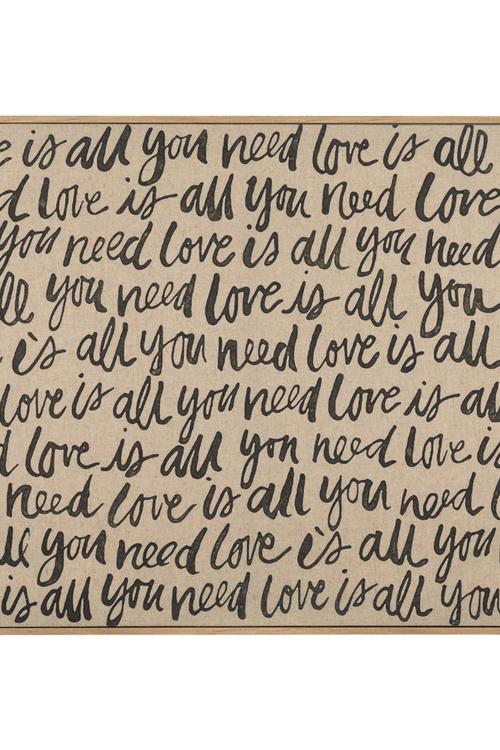 e is all you need love is all
d love is all you need love
you need love is all you need
ll you need love is all you
is all you need love is all
love is all you need love is al
d love is all you need love is
need love is all you need l
ll you need love is all you
is all you need love is all you